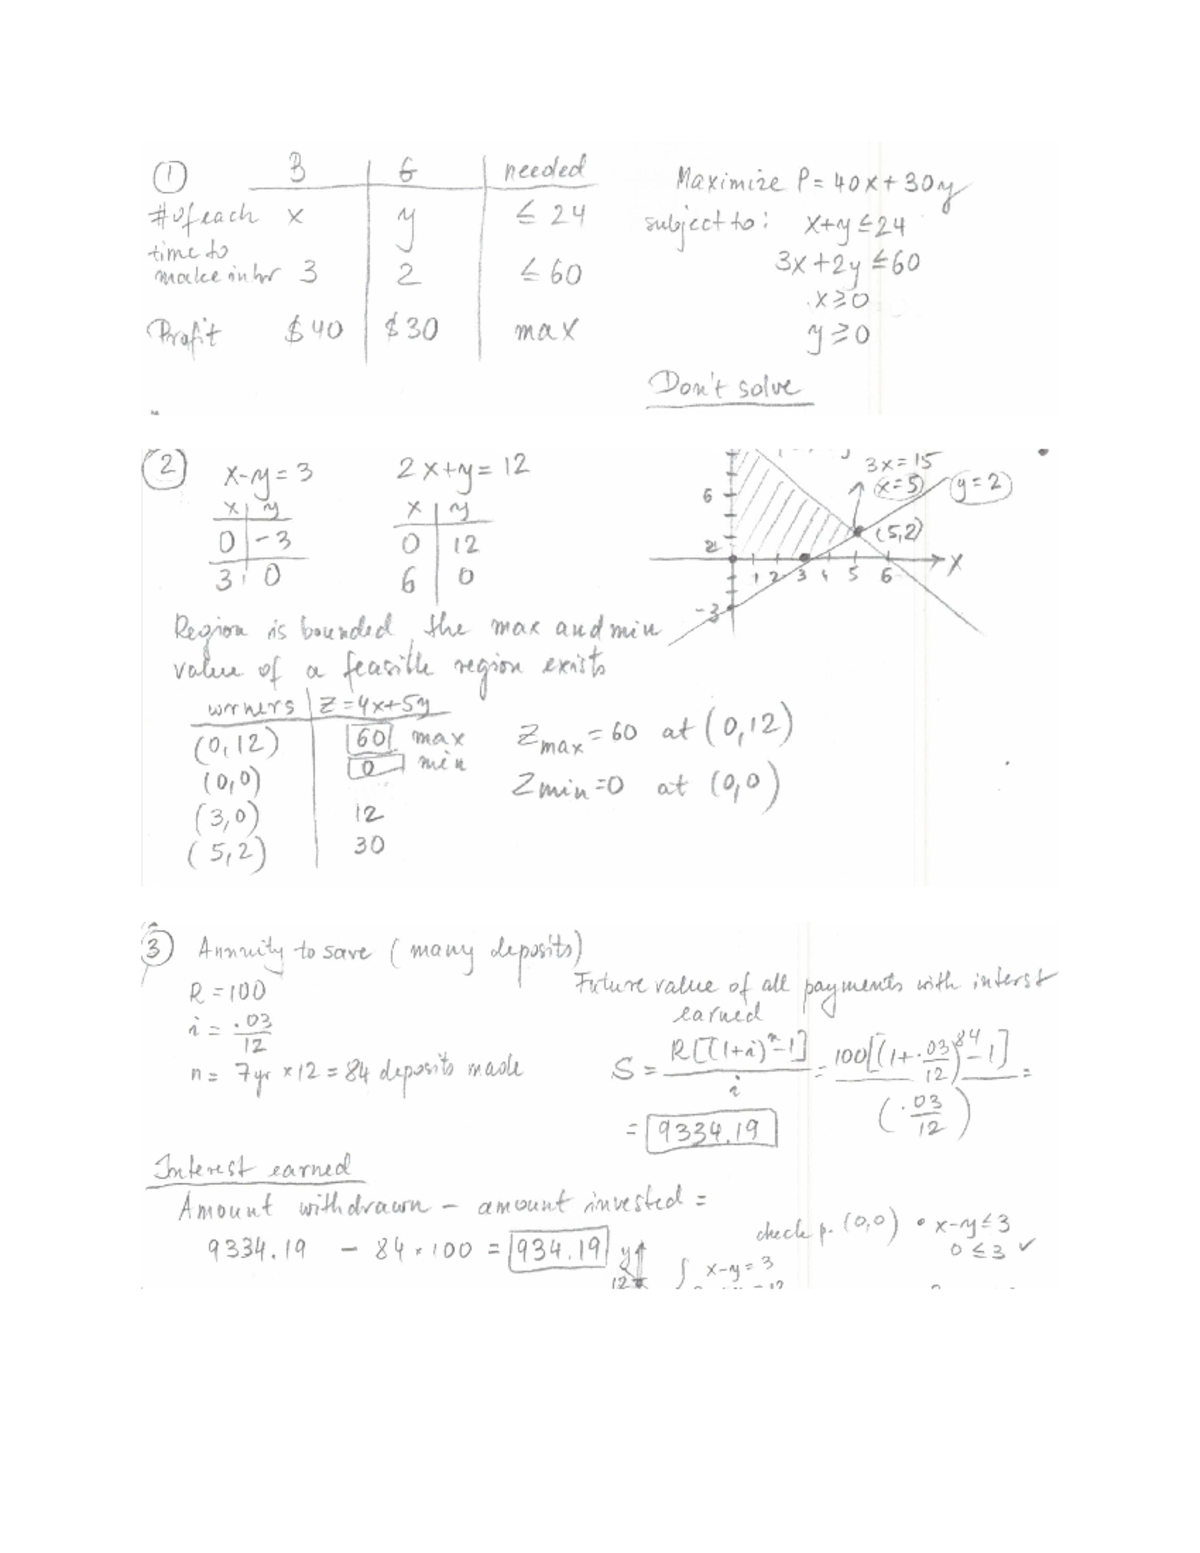 ① B G needed
# of each x y ≤ 24
time to
make in hr 3 2 ≤ 60
Profit $40 $30 max
Maximize P = 40x + 30y
subject to: x+y ≤ 24
3x + 2y ≤ 60
x ≥ 0
y ≥ 0
Don't solve
② x-y = 3 2x+y = 12
x y x y
0 -3 0 12
3 0 6 0
3x = 15
x = 5 y = 2
(5,2)
6
2
1 2 3 4 5 6 x
-3
Region is bounded, the max and min
value of a feasible region exists
corners z = 4x+5y
(0,12) 60 max
(0,0) 0 min
(3,0) 12
(5,2) 30
Zmax = 60 at (0,12)
Zmin = 0 at (0,0)
③ Annuity to save (many deposits)
R = 100
i = .03/12
n = 7yr × 12 = 84 deposits made
Future value of all payments with interst
earned
S = R[(1+i)^n - 1]/i = 100[(1+.03/12)^84 - 1]/(.03/12) =
= 9334.19
Interest earned
Amount withdrawn - amount invested =
9334.19 - 84 × 100 = 934.19
check p. (0,0) • x-y ≤ 3
0 ≤ 3 ✓
y
12
x-y = 3